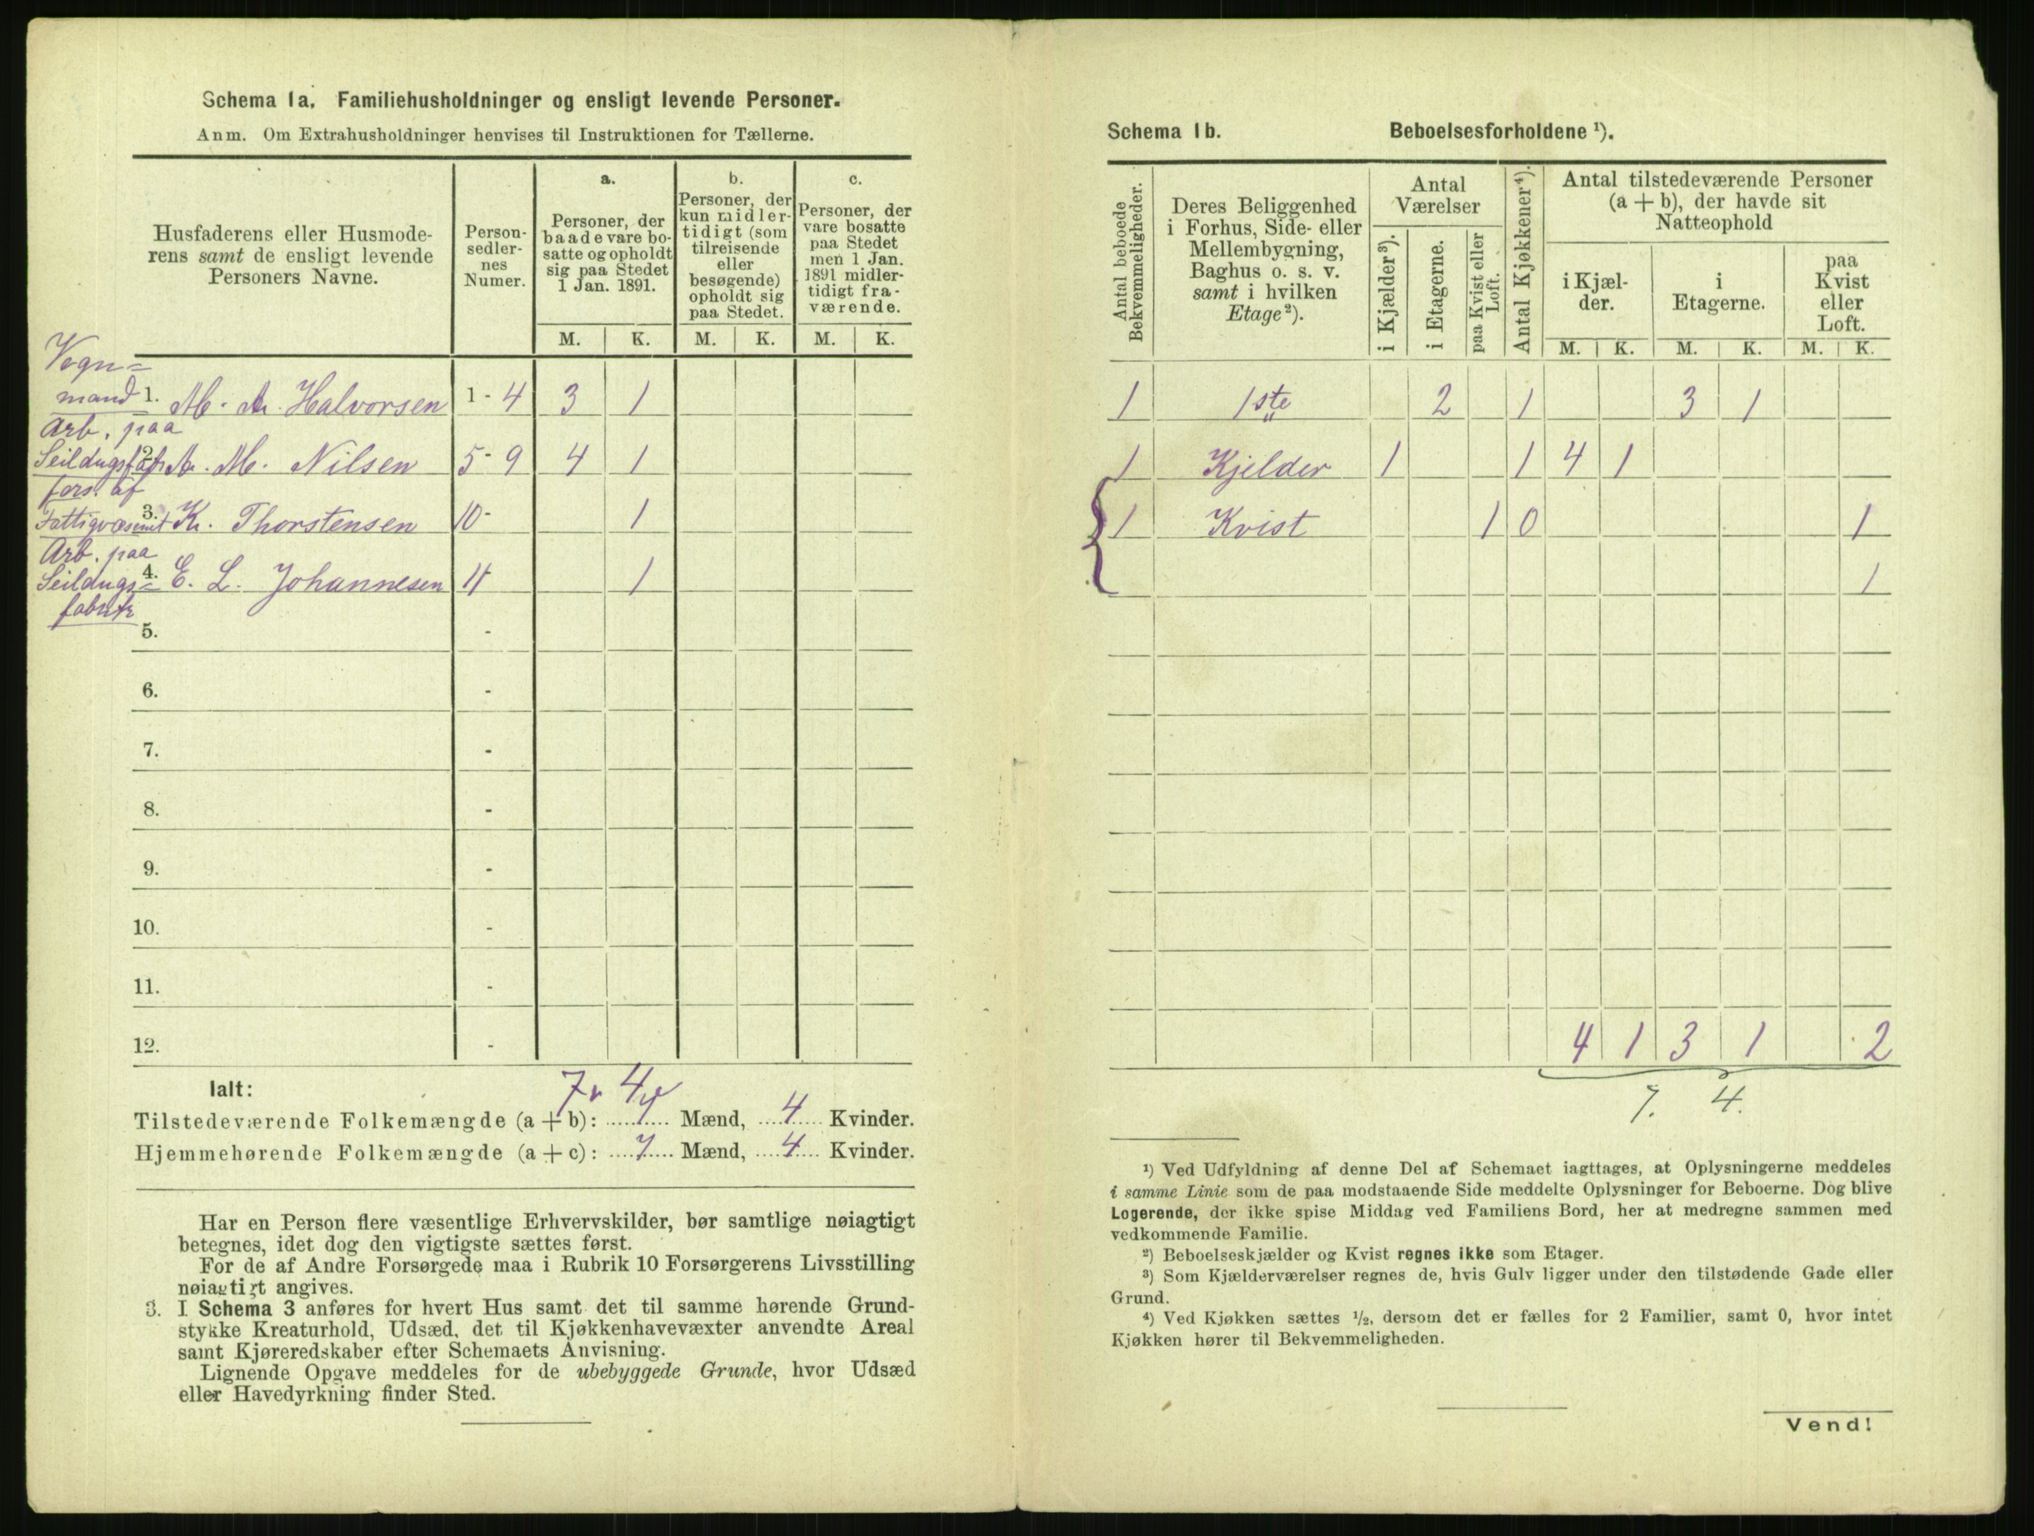 Schema 1a. Familiehusholdninger og ensligt levende Personer.
Anm. Om Extrahusholdninger henvises til Instruktionen for Tællerne.
Husfaderens eller Husmode-
rens samt de ensligt levende
Personers Navne.
Person-
sedler-
nes
Numer.
a.
Personer, der
baade vare bo-
satte og opholdt
sig paa Stedet
1 Jan. 1891.
b.
Personer, der
kun midler-
tidigt (som
tilreisende
eller
besøgende)
opholdt sig
paa Stedet.
c.
Personer, der
vare bosatte
paa Stedet
men 1 Jan.
1891 midler-
tidigt fra-
værende.
M. K. M. K. M. K.
Vogn=
mand 1. M. A. Halvorsen 1 - 4 3 1
Arb. paa
Seildugsfabr 2. A. M. Nilsen 5 - 9 4 1
fors. af
Fattigvæsenet 3. K. Thorstensen 10 - 1
Arb. paa
Seildugs= 4. E. L. Johannesen 11 1
fabrik
5. -
6. -
7. -
8. -
9. -
10. -
11. -
12. -
Ialt: 7 4
Tilstedeværende Folkemængde (a + b): 7 Mænd, 4 Kvinder.
Hjemmehørende Folkemængde (a + c): 7 Mænd, 4 Kvinder.
Har en Person flere væsentlige Erhvervskilder, bør samtlige nøiagtigt
betegnes, idet dog den vigtigste sættes først.
For de af Andre Forsørgede maa i Rubrik 10 Forsørgerens Livsstilling
nøiagtigt angives.
3. I Schema 3 anføres for hvert Hus samt det til samme hørende Grund-
stykke Kreaturhold, Udsæd, det til Kjøkkenhavevæxter anvendte Areal
samt Kjøreredskaber efter Schemaets Anvisning.
Lignende Opgave meddeles for de ubebyggede Grunde, hvor Udsæd
eller Havedyrkning finder Sted.
Schema 1b. Beboelsesforholdene ¹).
Antal beboede
Bekvemmeligheder.
Deres Beliggenhed
i Forhus, Side- eller
Mellembygning,
Baghus o. s. v.
samt i hvilken
Etage²).
Antal
Værelser
i Kjælder³).
i Etagerne.
paa Kvist eller
Loft.
Antal Kjøkkener⁴).
Antal tilstedeværende Personer
(a + b), der havde sit
Natteophold
i Kjæl-
der.
i
Etagerne.
paa
Kvist
eller
Loft.
M. K. M. K. M. K.
1 1ste 2 1 3 1
1 Kjelder 1 1 4 1
1 Kvist 1 0 1
1
4 1 3 1 2
7. 4.
¹) Ved Udfyldning af denne Del af Schemaet iagttages, at Oplysningerne meddeles
i samme Linie som de paa modstaaende Side meddelte Oplysninger for Beboerne. Dog blive
Logerende, der ikke spise Middag ved Familiens Bord, her at medregne sammen med
vedkommende Familie.
²) Beboelseskjælder og Kvist regnes ikke som Etager.
³) Som Kjælderværelser regnes de, hvis Gulv ligger under den tilstødende Gade eller
Grund.
⁴) Ved Kjøkken sættes ½, dersom det er fælles for 2 Familier, samt 0, hvor intet
Kjøkken hører til Bekvemmeligheden.
Vend!